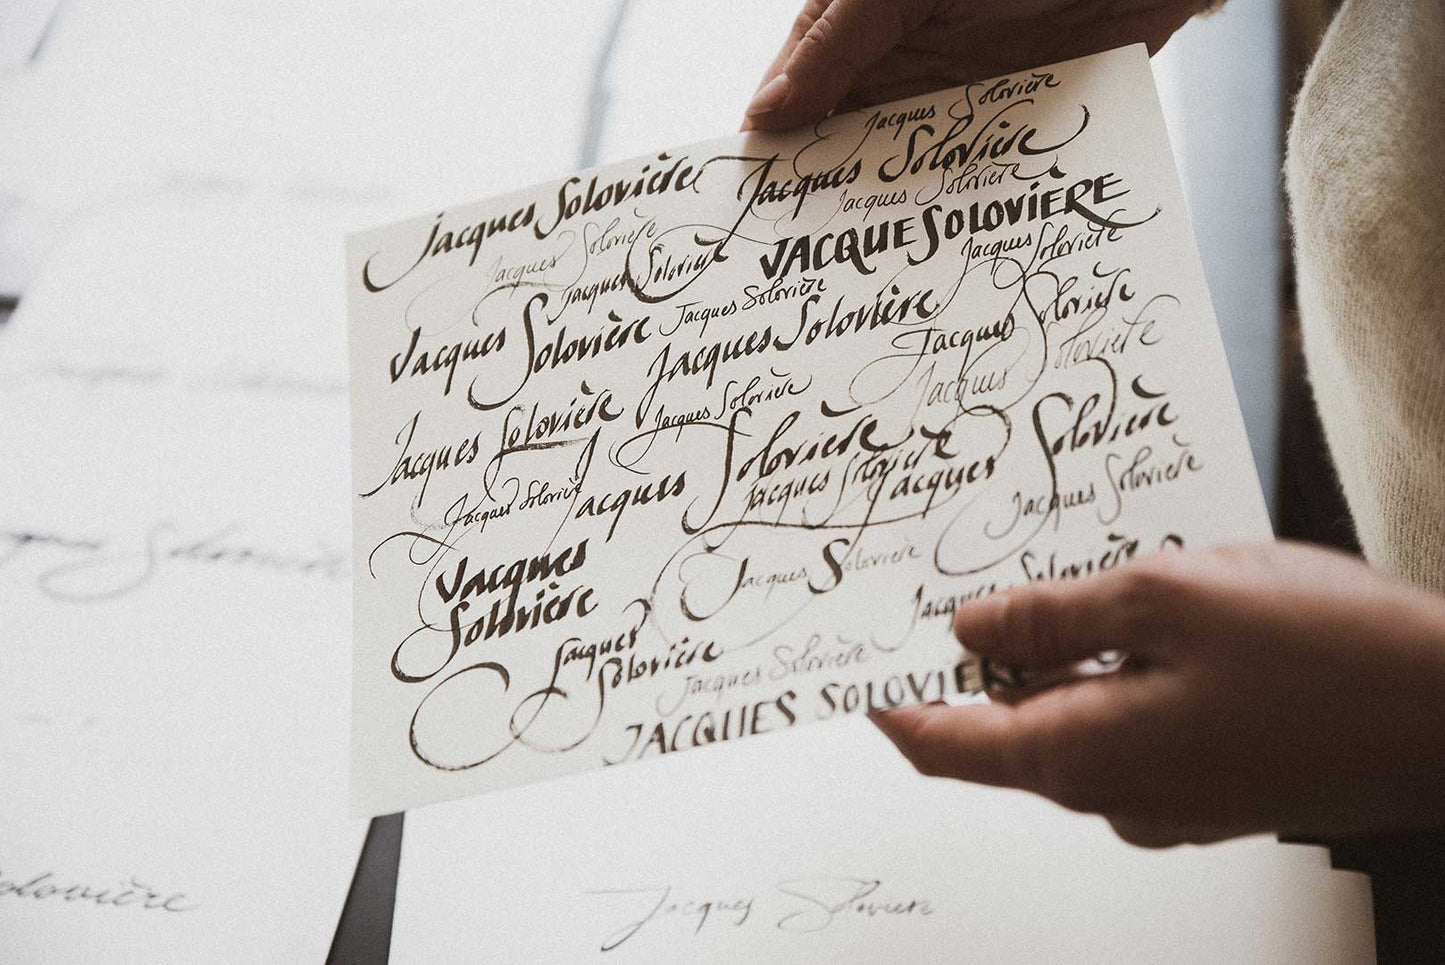 Jacques Solovière
Jacques Solovière
Jacques Solovière
Jacques Solovière
Jacques Solovière
Jacques Solovière
JACQUE SOLOVIÈRE
Jacques Solovière
Jacques Solovière
Jacques Solovière
Jacques Solovière
Jacques Solovière
Jacques Solovière
Jacques Solovière
Jacques Solovière
Jacques Solovière
Jacques Solovière
Jacques Solovière
Jacques Solovière
Jacques Solovière
Jacques Solovière
Jacques Solovière
Jacques
Solovière
Jacques Solovière
Jacques Solovière
Jacques
Solovière
Jacques Solovière
JACQUES SOLOVIÈRE
Solovière
Solovière
Jacques Solovière